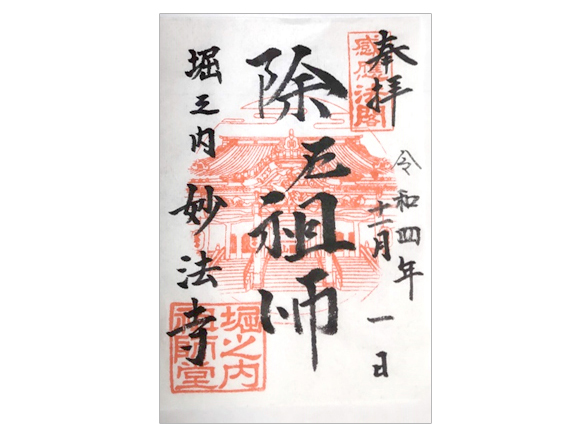 奉拝
感應法閣
令和四年
十二月
一日
除厄祖師
堀之内
妙法寺
堀之内
祖師堂